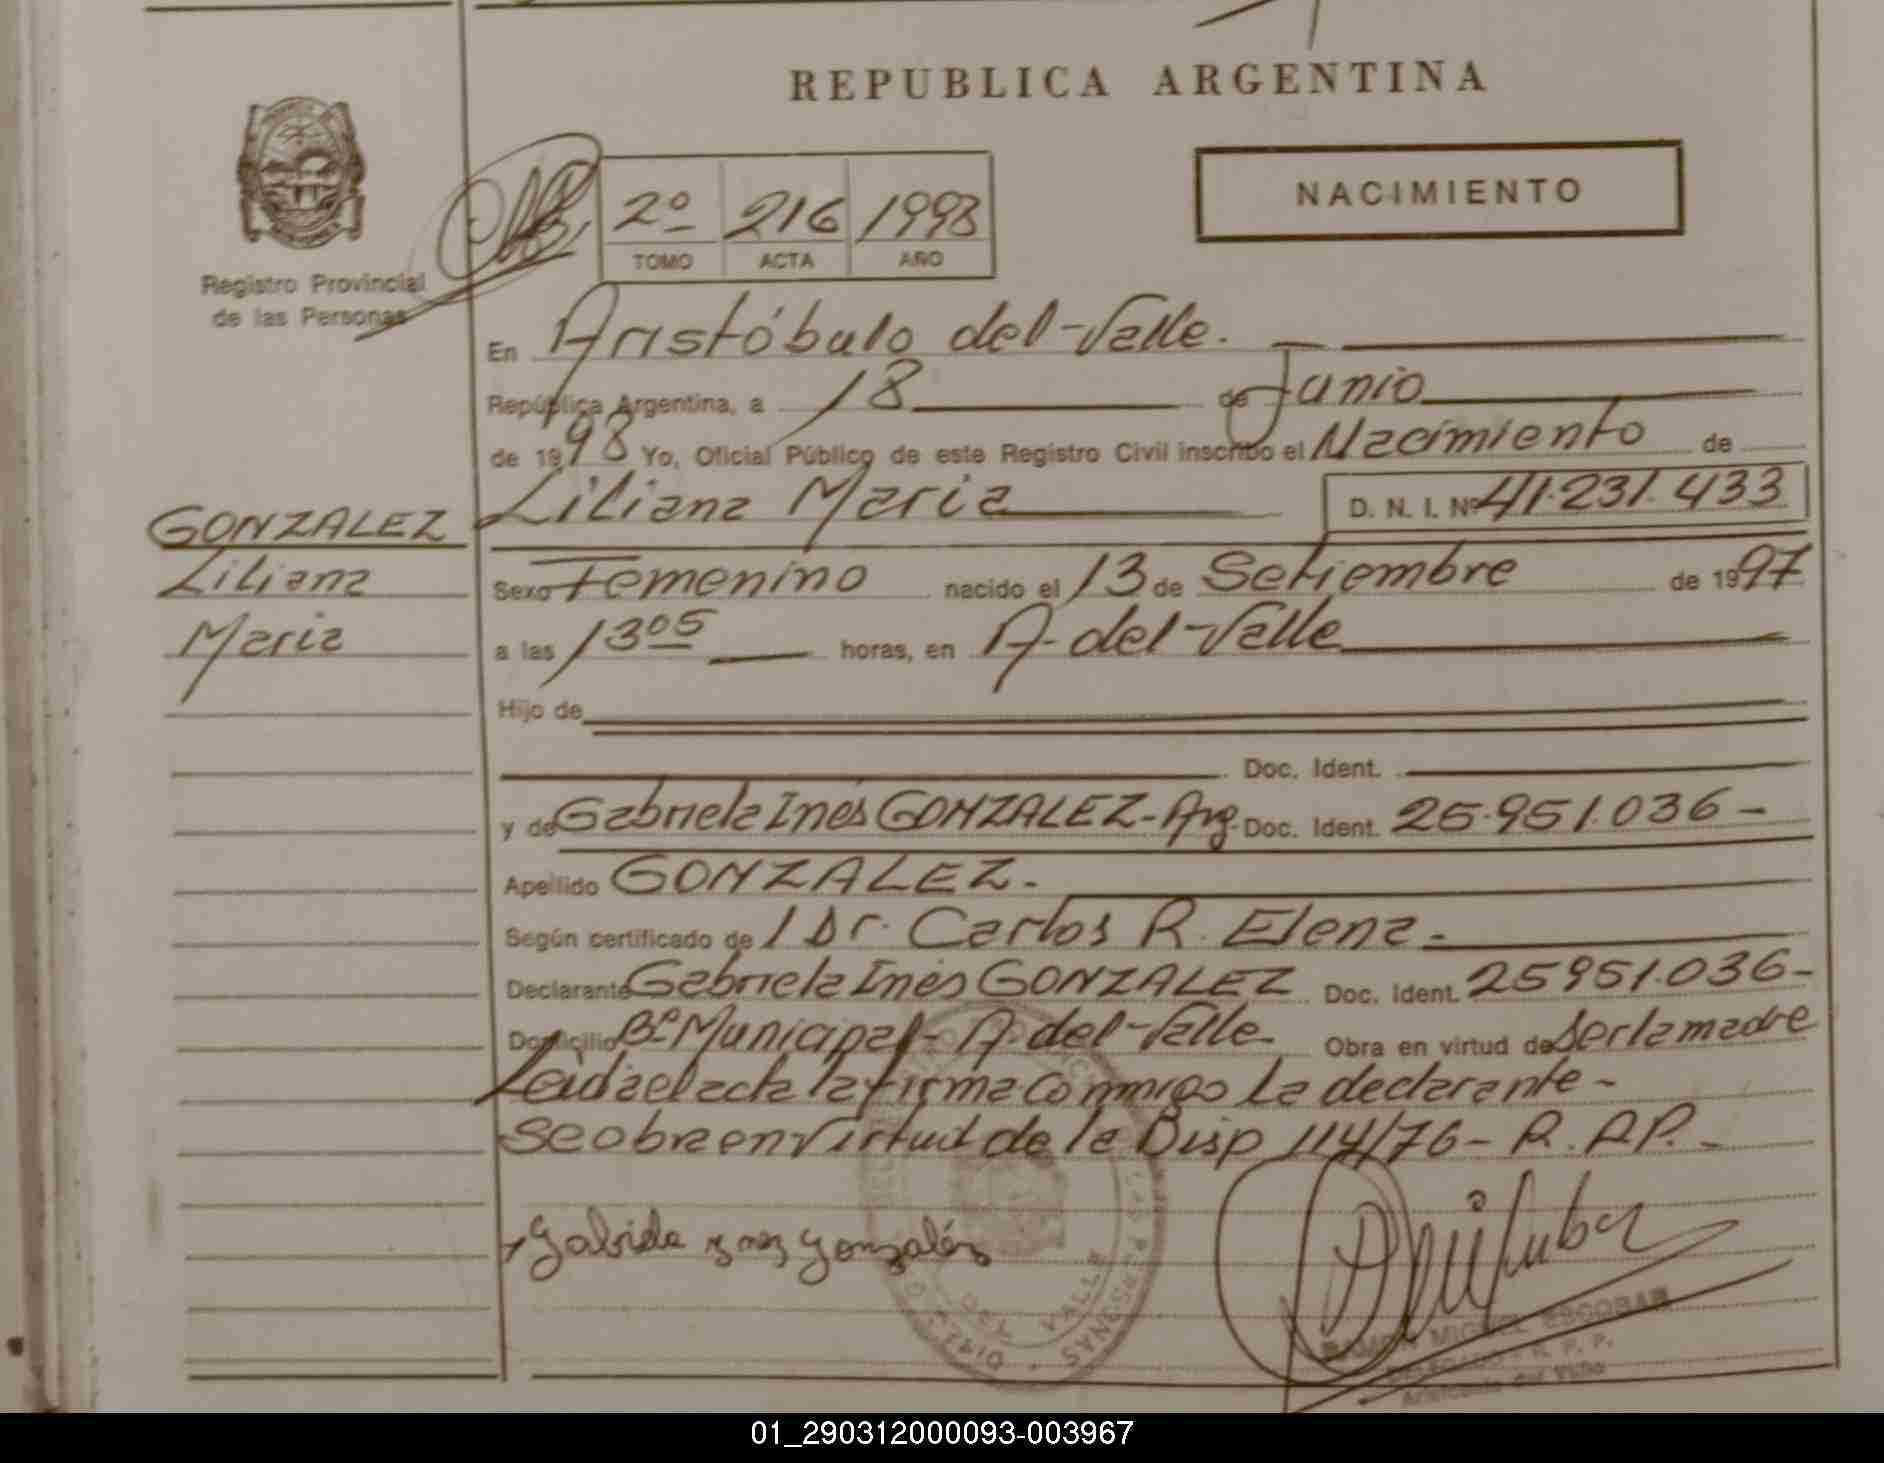 REPUBLICA ARGENTINA
NACIMIENTO
Registro Provincial
de las Personas
2º 216 1998
TOMO ACTA AÑO
En Aristóbulo del Valle.
República Argentina, a 18 de Junio
de 1998 Yo, Oficial Público de este Registro Civil inscribo el Nacimiento de
Liliana Maria D. N. I. Nº 41.231.433
GONZALEZ
Liliana
Maria
Sexo Femenino nacido el 13 de Setiembre de 1997
a las 13 05 horas, en A. del Valle
Hijo de
Doc. Ident.
y de Gabriela Inés GONZALEZ - Arg. Doc. Ident. 25.951.036 -
Apellido GONZALEZ.
Según certificado de 1 Dr. Carlos R. Elena -
Declarante Gabriela Inés GONZALEZ Doc. Ident. 25951.036 -
Domicilio Bº Municipal - A. del Valle - Obra en virtud de ser la madre
Leida el acta la firma conmigo la declarante -
se obra en virtud de la Disp 114/76 -
Gabriela ynes gonzalés
DEL VALLE
RAMON MIGUEL ESCOBAR
DELEGADO R. P. P.
Aristóbulo del Valle
01_290312000093-003967